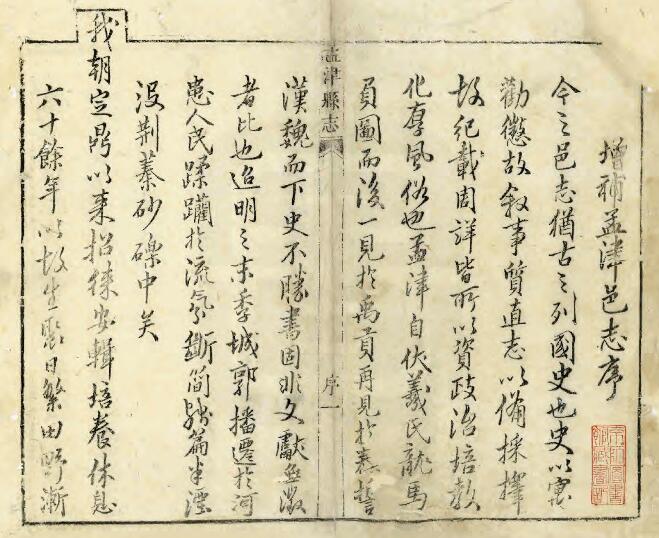 增補孟津邑志序
今之邑志猶古之列國史也史以寓
勸懲故敘事質直志以備採擇
故紀載周詳皆所以資政治培教
化厚風俗也孟津自伏羲氏龍馬
負圖而後一見於禹貢再見於泰誓
孟津縣志
序一
漢魏而下史不勝書固非文獻無徵
者比也迨明之末季城郭播遷於河
患人民蹂躪於流氛斷簡殘篇半湮
沒荆蓁砂礫中矣
我朝定鼎以來招徠安輯培養休息
六十餘年以故生聚日繁田野漸